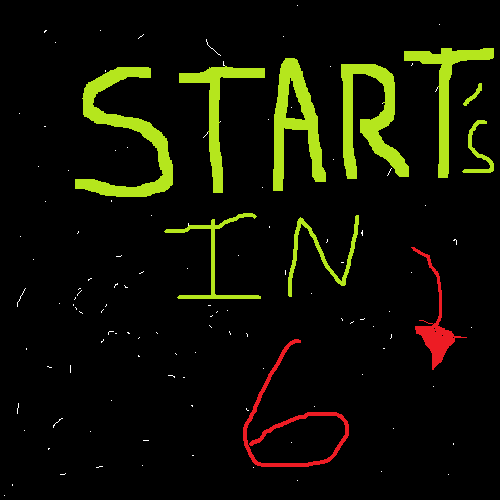 START's
IN
6